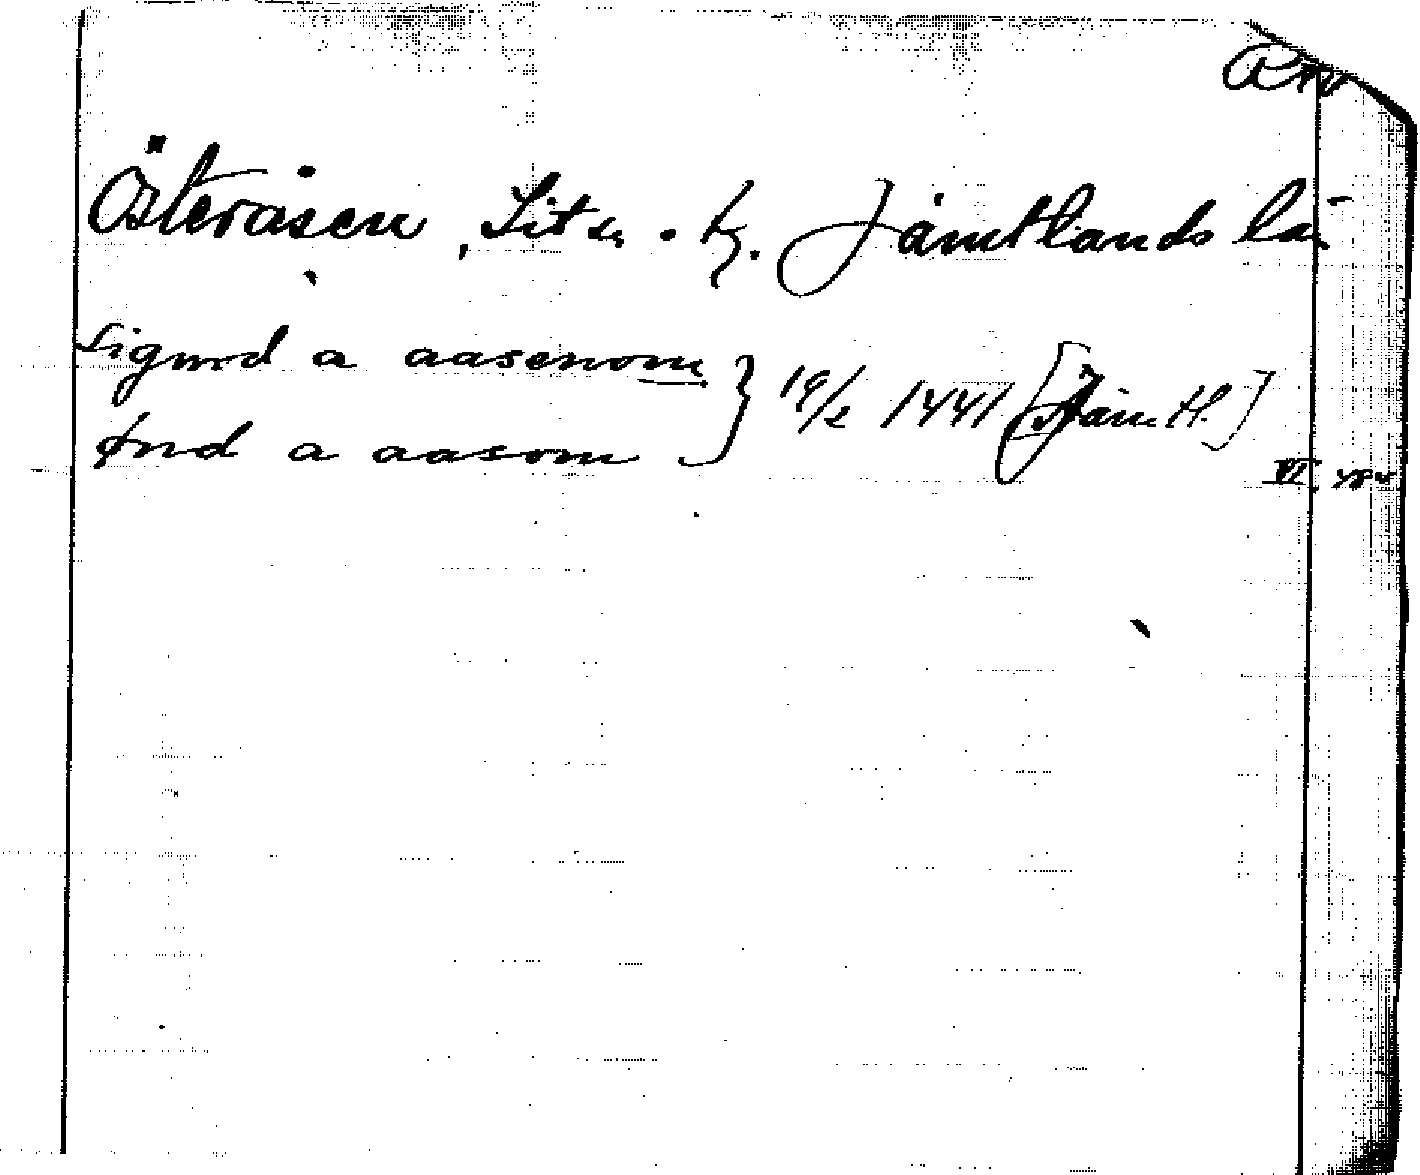 Österåsen, Lits s. . h. Jämtlands lä
Sigurd a aasenom } 19/2 1441 [Jämtl.]
ønd a aasom
VI